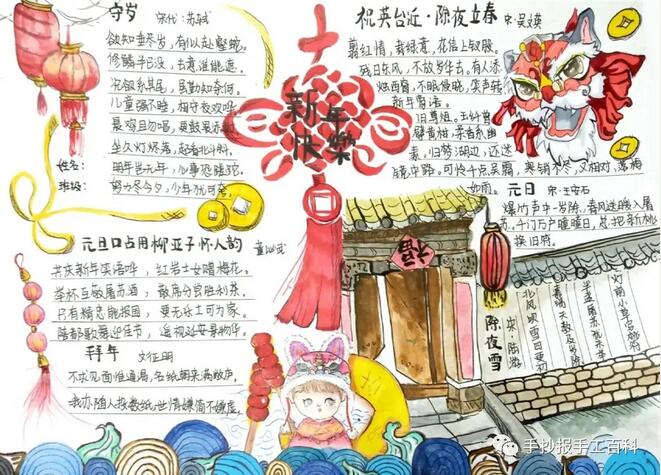 守岁
宋代：苏轼
欲知垂尽岁，有似赴壑蛇。
修鳞半已没，去意谁能遮。
况欲系其尾，虽勤知奈何。
儿童强不睡，相守夜欢哗。
晨鸡且勿唱，更鼓畏添
坐久灯烬落，起看北斗斜。
明年岂无年，心事恐蹉跎。
努力尽今夕，少年犹可夸。
姓名：
班级：
元旦口占用柳亚子怀人韵
董必武
共庆新年笑语哗，红岩士女赠梅花。
举杯互敬屠苏酒，散席分尝胜利茶。
只有精忠能报国，更无乐土可为家。
陪都歌舞迎佳节，遥祝延安景物华。
拜年
文征明
不求见面惟通谒，名纸朝来满敝庐。
我亦随人投数纸，世情嫌简不嫌虚。
新年
快樂
祝英台近·除夜立春
宋：吴文英
翦红情，裁绿意，花信上钗股。
残日东风，不放岁华去。有人添
烛西窗，不眠侵晓，笑声转
新年莺语。
旧尊俎。玉纤曾
擘黄柑，柔香系幽
素。归梦湖边，还迷
镜中路。可怜千点吴霜，寒销不尽，又相对，落梅
如雨。
元日
宋：王安石
爆竹声中一岁除，春风送暖入屠
苏。千门万户曈曈日，总把新桃
换旧符。
福
除夜雪
宋：陆游
北风吹雪四更初
嘉瑞天教及岁除
半盏屠苏犹未举
灯前小草写桃符
手抄报手工百科